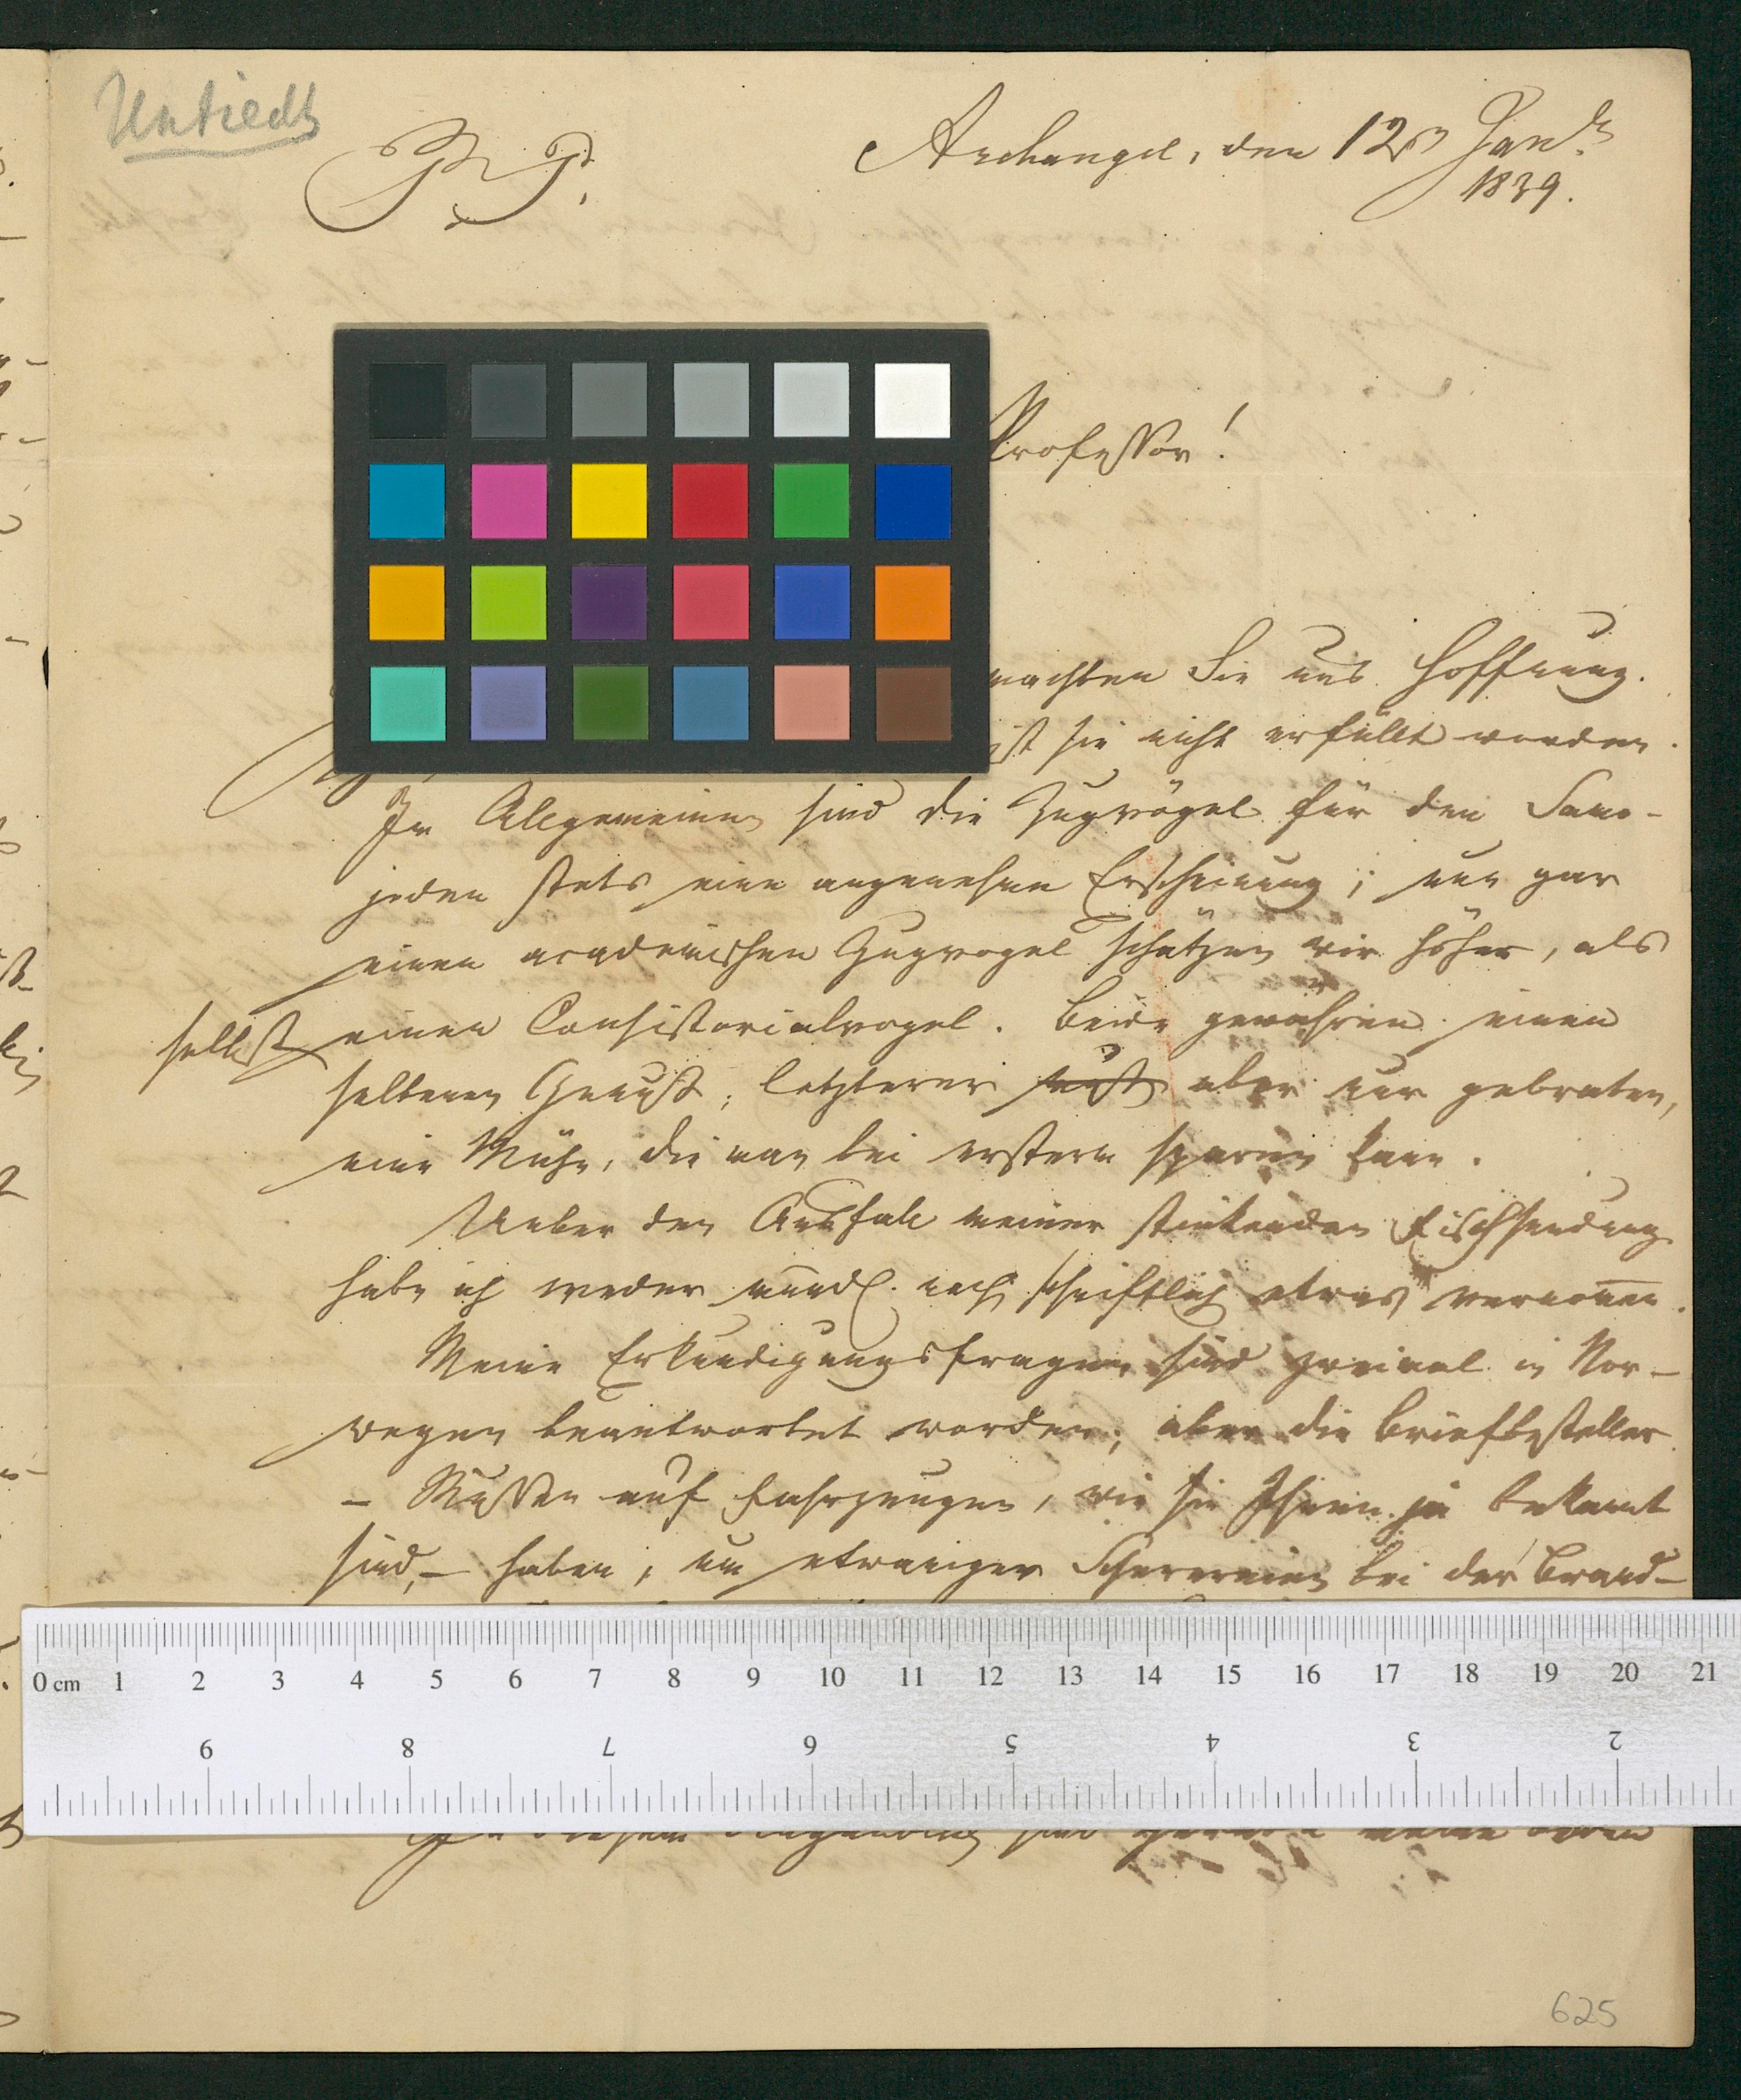 Untiedt
P. P.
Archangel, den 12ten Janr.
1839.
Professor!
machten Sie uns Hoffnung.
ist sie nicht erfüllt worden.
Im Allgemeinen sind die Zugvögel für den Samo-
jeden stets eine angenehme Erscheinung; nun gar
einen academischen Zugvogel schätzen wir höher, als
selbst einen Consistorialvogel. Beide gewähren einen
seltenen Genuß; letzterer aber nur gebraten,
eine Mühe, die man bei ersterm sparen kann.
Ueber den Ausfall meiner stinkenden Fischsendung
habe ich weder mündl. noch schriftlich etwas vernommen.
Meine Erkundigungsfragen sind zweimal in Nor-
wegen beantwortet worden; aber die Briefbesteller
– Russen auf Fahrzeugen, wie sie Ihnen ja bekannt
sind, – haben, um etwaigen Scherereien bei der Brand-
0 cm 1 2 3 4 5 6 7 8 9 10 11 12 13 14 15 16 17 18 19 20 21
9 8 7 6 5 4 3 2
In diesem Augenblick sind gerade meine
625